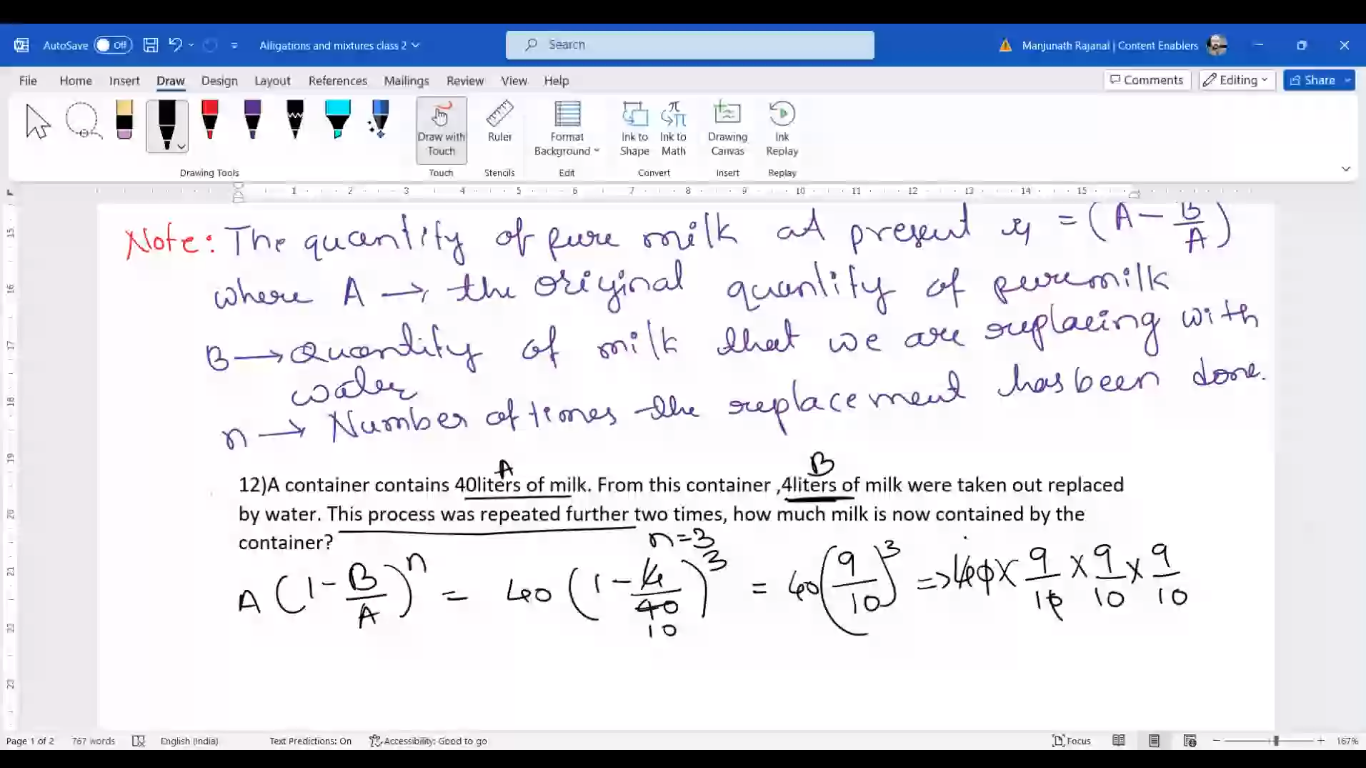 AutoSave Off Alligations and mixtures class 2 Search Manjunath Rajanal | Content Enablers
File Home Insert Draw Design Layout References Mailings Review View Help Comments Editing Share
Draw with Touch Ruler Format Background Ink to Shape Ink to Math Drawing Canvas Ink Replay
Drawing Tools Touch Stencils Edit Convert Insert Replay
1 2 3 4 5 6 7 8 9 10 11 12 13 14 15
15 16 17 18 19 20 21 22 23
Note: The quantity of pure milk at present is = (A - B/A)
where A → the original quantity of pure milk
B → Quantity of milk that we are replacing with
water
n → Number of times the replacement has been done.
A B
12)A container contains 40liters of milk. From this container ,4liters of milk were taken out replaced
by water. This process was repeated further two times, how much milk is now contained by the
container? n=3
A (1 - B/A)^n = 40 (1 - 4/40)^3 = 40 (9/10)^3 => 40 × 9/10 × 9/10 × 9/10
10
Page 1 of 2 767 words English (India) Text Predictions: On Accessibility: Good to go Focus 167%